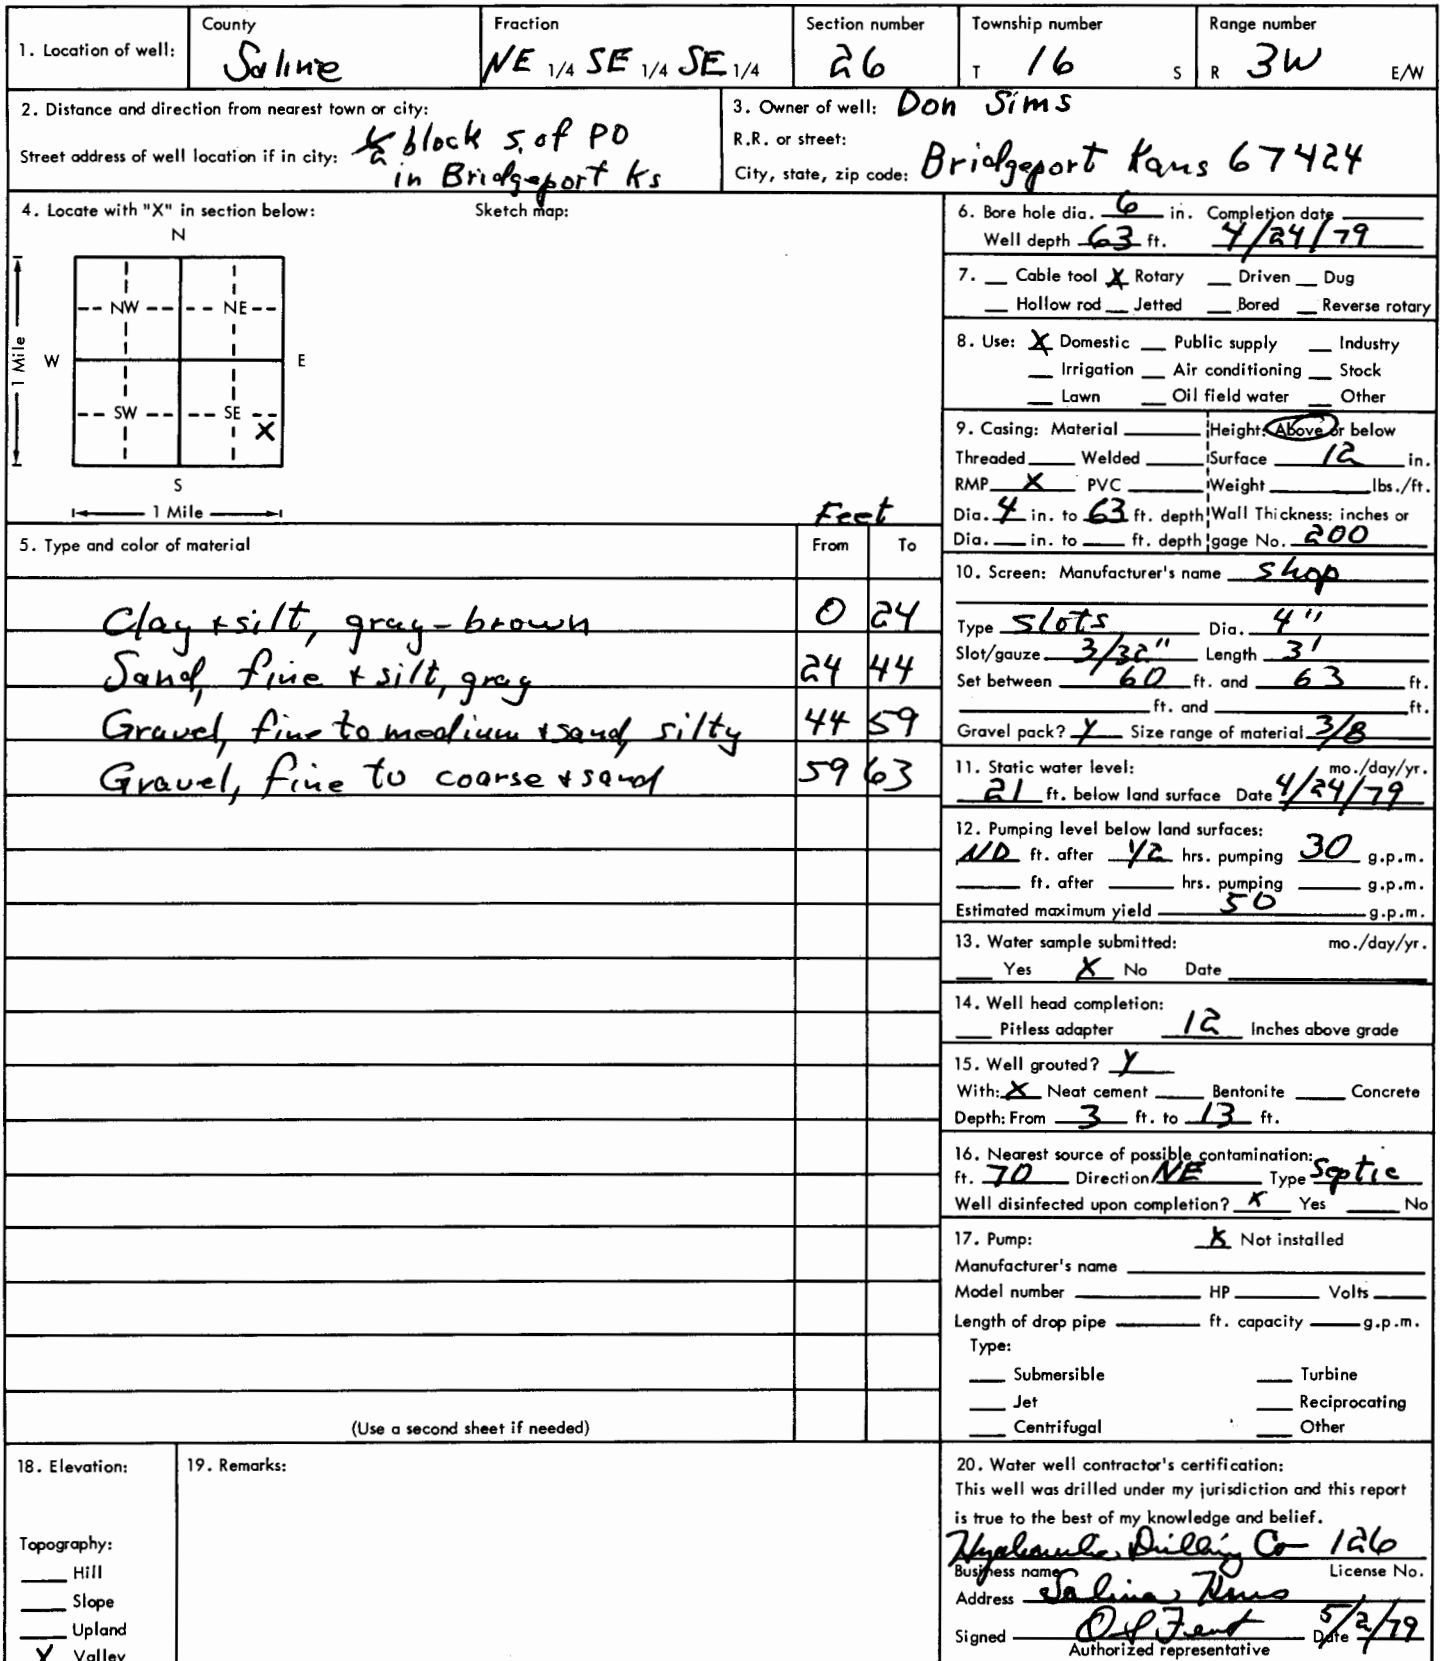 County Fraction Section number Township number Range number
1. Location of well: Saline NE 1/4 SE 1/4 SE 1/4 26 T 16 S R 3W E/W
2. Distance and direction from nearest town or city:
Street address of well location if in city: 1/2 block S. of PO
in Bridgeport Ks
3. Owner of well: Don Sims
R.R. or street:
City, state, zip code: Bridgeport Kans 67424
4. Locate with "X" in section below: Sketch map:
N
NW NE
W E
1 Mile
SW SE
X
S
1 Mile
Feet
5. Type and color of material From To
Clay + silt, gray-brown 0 24
Sand, fine + silt, gray 24 44
Gravel, fine to medium + sand, silty 44 59
Gravel, fine to coarse + sand 59 63
(Use a second sheet if needed)
6. Bore hole dia. 6 in. Completion date
Well depth 63 ft. 4/24/79
7. __ Cable tool X Rotary __ Driven __ Dug
__ Hollow rod __ Jetted __ Bored __ Reverse rotary
8. Use: X Domestic __ Public supply __ Industry
__ Irrigation __ Air conditioning __ Stock
__ Lawn __ Oil field water __ Other
9. Casing: Material ____ Height: Above or below
Threaded ____ Welded ____ Surface 12 in.
RMP X PVC ____ Weight ____ lbs./ft.
Dia. 4 in. to 63 ft. depth Wall Thickness: inches or
Dia. __ in. to __ ft. depth gage No. 200
10. Screen: Manufacturer's name shop
Type slots Dia. 4"
Slot/gauze 3/32" Length 3'
Set between 60 ft. and 63 ft.
____ ft. and ____ ft.
Gravel pack? Y Size range of material 3/8
11. Static water level: mo./day/yr.
21 ft. below land surface Date 4/24/79
12. Pumping level below land surfaces:
ND ft. after 1/2 hrs. pumping 30 g.p.m.
____ ft. after ____ hrs. pumping ____ g.p.m.
Estimated maximum yield 50 g.p.m.
13. Water sample submitted: mo./day/yr.
__ Yes X No Date ____
14. Well head completion:
__ Pitless adapter 12 Inches above grade
15. Well grouted? Y
With: X Neat cement __ Bentonite __ Concrete
Depth: From 3 ft. to 13 ft.
16. Nearest source of possible contamination:
ft. 70 Direction NE Type Septic
Well disinfected upon completion? X Yes __ No
17. Pump: X Not installed
Manufacturer's name ____
Model number ____ HP ____ Volts ____
Length of drop pipe ____ ft. capacity ____ g.p.m.
Type:
__ Submersible __ Turbine
__ Jet __ Reciprocating
__ Centrifugal __ Other
18. Elevation:
Topography:
__ Hill
__ Slope
__ Upland
X Valley
19. Remarks:
20. Water well contractor's certification:
This well was drilled under my jurisdiction and this report
is true to the best of my knowledge and belief.
Hydraulic Drilling Co 126
Business name License No.
Address Salina, Kans
Signed Date 5/2/79
Authorized representative